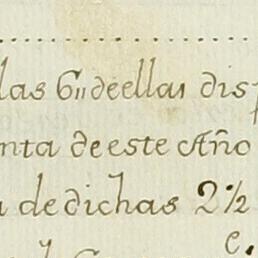 las 6,, de ellas dis
nta de este Año
de dichas 2 ½